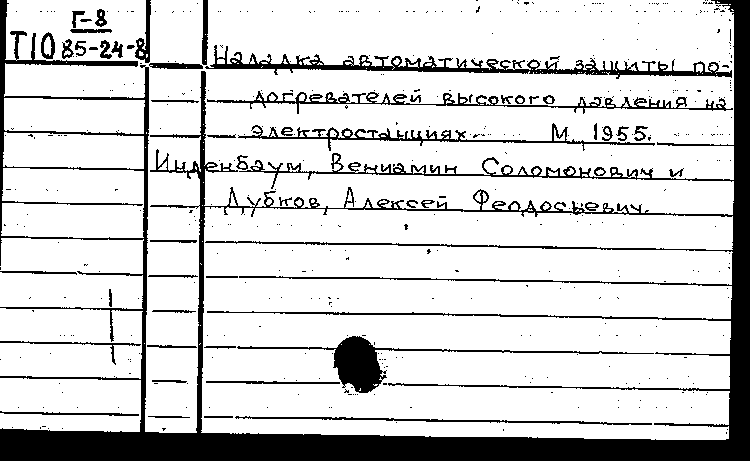 Г-8
Т10 85-24-8
Наладка автоматической защиты по-
догревателей высокого давления на
электростанциях. М., 1955.
Инденбаум, Вениамин Соломонович и
Дубков, Алексей Феодосьевич.